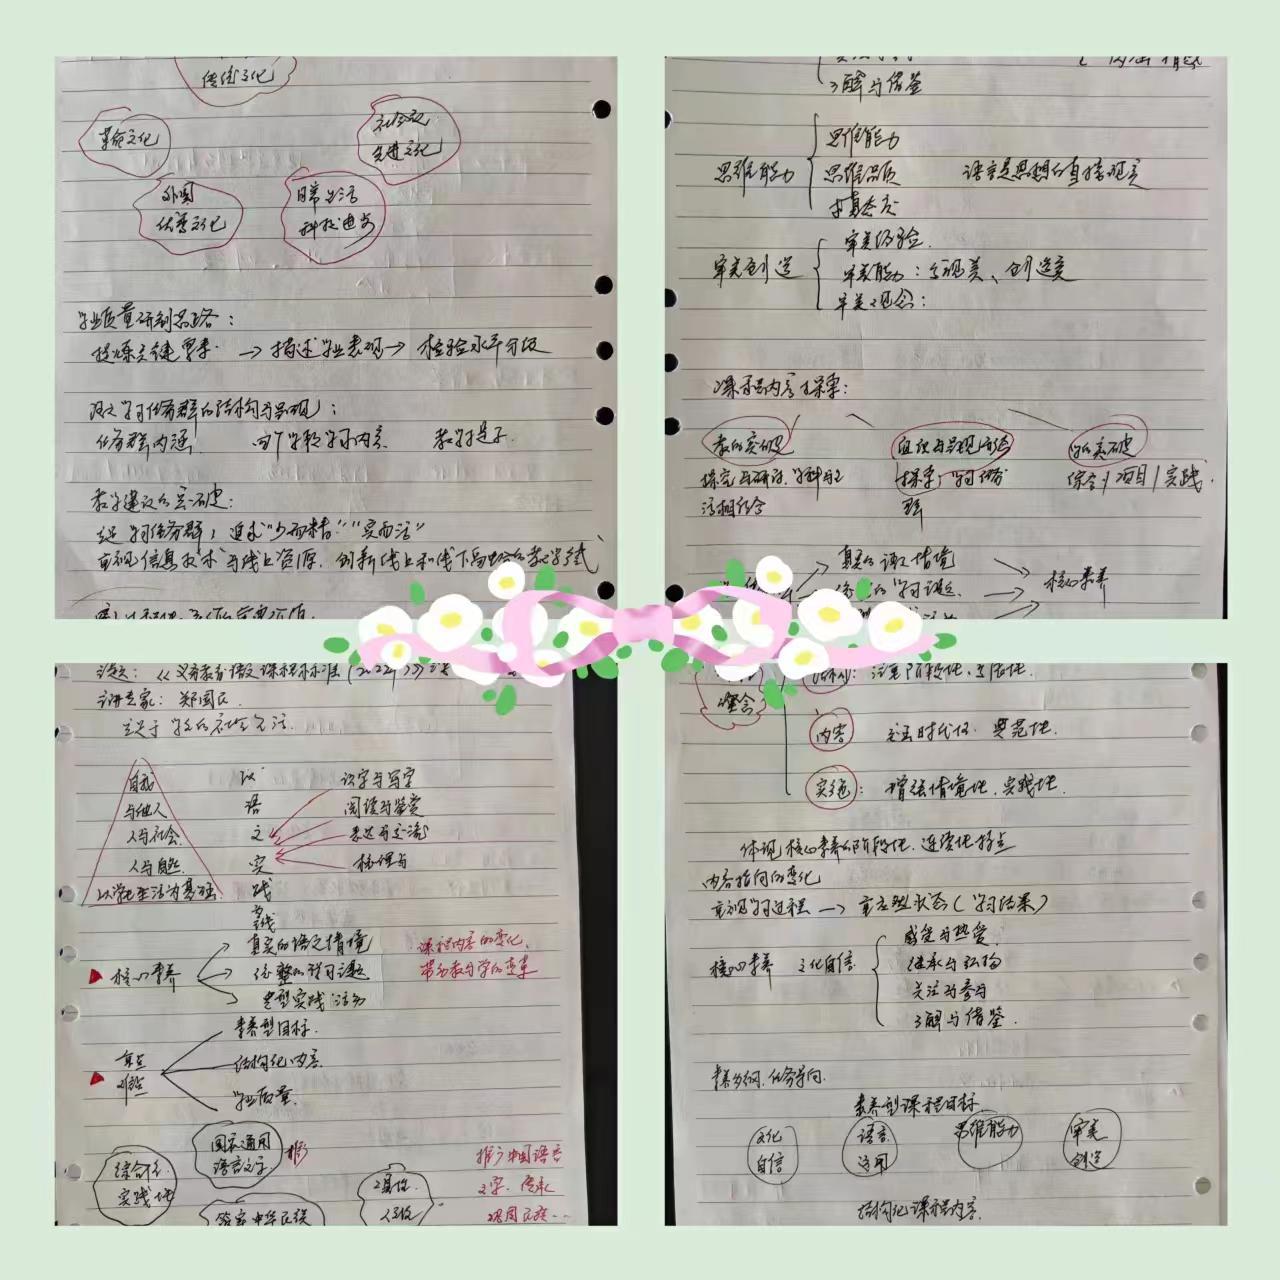 传统文化
革命文化
社会主义
先进文化
外国
优秀文化
日常生活
科技进步
学业质量研制思路：
提炼关键要素 → 描述学业表现 → 检验水平分级
语文学习任务群的结构与呈现：
任务群内涵 由个学段学习内容 教学提示
教学建议的突破：
学习任务群，追求"少而精""实而活"
重视信息技术与线上资源，创新线上和线下
了解与借鉴
思维能力
思维能力
思维品质
语言是思想的直接现实
审美创造
审美经验
审美能力：发现美、创造美
审美观念：
课程内容探索：
教的突破
组织与呈现
学的突破
学习任务
综合/项目/实践
真实的语文情境
学习课题
核心素养
《义务教育语文课程标准(2022)》
讲专家：郑国民
自我
与他人
人与社会
人与自然
以学生生活为基础
语
文
实
践
识字与写字
阅读与鉴赏
表达与交流
梳理与
核心素养
真实的语文情境
完整的学习课题
典型实践活动
课程内容的变化，
带动教与学的变革
重点
难点
素养型目标
结构化内容
学业质量
综合性
实践性
国家通用
语言文字
推广
工具性
人文性
推广中国语言
文字、传承
巩固民族……
理念
注重阶段性、发展性
内容
突出时代性、典范性
实施：增强情境性、实践性
体现核心素养的阶段性、连续性特点
内容指向的变化
重视学习过程 → 重在型状态（学习结果）
核心素养 文化自信
感受与热爱
继承与弘扬
关注与参与
了解与借鉴
素养为纲，任务导向
素养型课程目标
文化
自信
语言
运用
思维能力
审美
创造
结构化课程内容